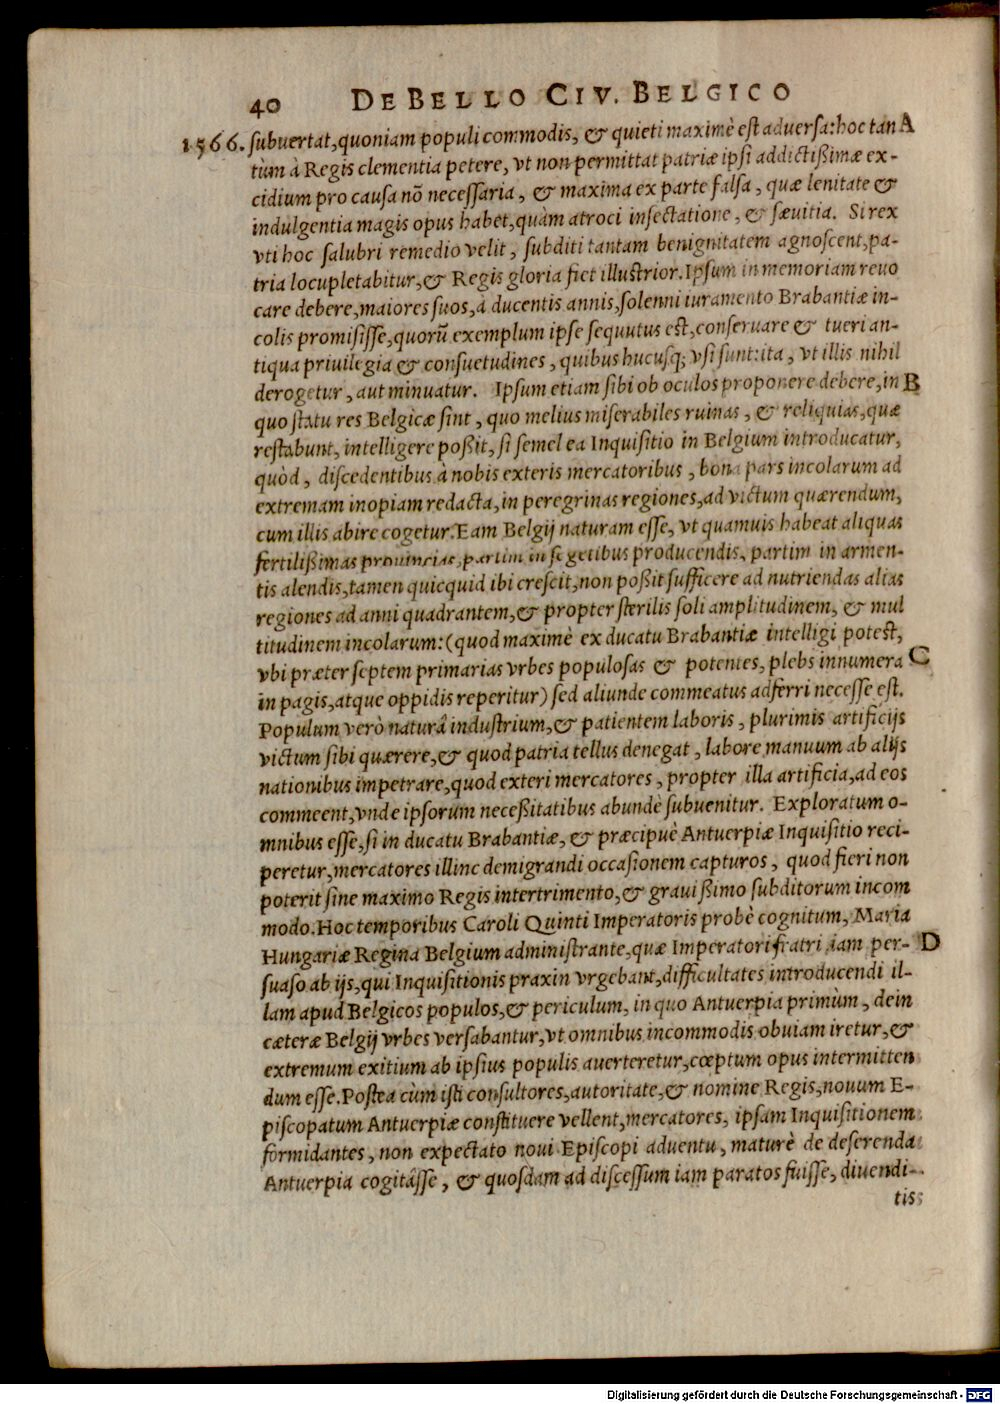 40 DE BELLO CIV. BELGICO
1566. subuertat, quoniam populi commodis, & quieti maximè est aduersa: hoc tan A
tùm à Regis clementia petere, vt non permittat patriæ ipsi addictißimæ ex-
cidium pro causa nõ necessaria, & maxima ex parte falsa, quæ lenitate &
indulgentia magis opus habet, quàm atroci insectatione, & sæuitia. Si rex
vti hoc salubri remedio velit, subditi tantam benignitatem agnoscent, pa-
tria locupletabitur, & Regis gloria fiet illustrior. Ipsum in memoriam reuo
care debere, maiores suos, à ducentis annis, solenni iuramento Brabantiæ in-
colis promisisse, quorũ exemplum ipse sequutus est, conseruare & tueri an-
tiqua priuilegia & consuetudines, quibus hucusq; vsi sunt: ita, vt illis nihil
derogetur, aut minuatur. Ipsum etiam sibi ob oculos proponere debere, in B
quo statu res Belgicæ sint, quo melius miserabiles ruinas, & reliquias, quæ
restabunt, intelligere poßit, si semel ea Inquisitio in Belgium introducatur,
quòd, discedentibus à nobis exteris mercatoribus, bona pars incolarum ad
extremam inopiam redacta, in peregrinas regiones, ad victum quærendum,
cum illis abire cogetur. Eam Belgij naturam esse, vt quamuis habeat aliquas
fertilißimas prouincias, partim in segetibus producendis, partim in armen-
tis alendis, tamen quicquid ibi crescit, non poßit sufficere ad nutriendas alias
regiones ad anni quadrantem, & propter sterilis soli amplitudinem, & mul
titudinem incolarum: (quod maximè ex ducatu Brabantiæ intelligi potest,
vbi præter septem primarias vrbes populosas & potentes, plebs innumera C
in pagis, atque oppidis reperitur) sed aliunde commeatus adferri necesse est.
Populum verò naturâ industrium, & patientem laboris, plurimis artificijs
victum sibi quærere, & quod patria tellus denegat, labore manuum ab alijs
nationibus impetrare, quod exteri mercatores, propter illa artificia, ad eos
commeent, vnde ipsorum neceßitatibus abundè subuenitur. Exploratum o-
mnibus esse, si in ducatu Brabantiæ, & præcipuè Antuerpiæ Inquisitio reci-
peretur, mercatores illinc demigrandi occasionem capturos, quod fieri non
poterit sine maximo Regis intertrimento, & grauißimo subditorum incom
modo. Hoc temporibus Caroli Quinti Imperatoris probè cognitum, Maria
Hungariæ Regina Belgium administrante, quæ Imperatori fratri iam per- D
suaso ab ijs, qui Inquisitionis praxin vrgebant, difficultates introducendi il-
lam apud Belgicos populos, & periculum, in quo Antuerpia primùm, dein
cæteræ Belgij vrbes versabantur, vt omnibus incommodis obuiam iretur, &
extremum exitium ab ipsius populis auerteretur, cœptum opus intermitten
dum esse. Postea cùm isti consultores, autoritate, & nomine Regis, nouum E-
piscopatum Antuerpiæ constituere vellent, mercatores, ipsam Inquisitionem
formidantes, non expectato noui Episcopi aduentu, maturè de deserenda
Antuerpia cogitâsse, & quosdam ad discessum iam paratos fuisse, diuendi-
tis
Digitalisierung gefördert durch die Deutsche Forschungsgemeinschaft - DFG